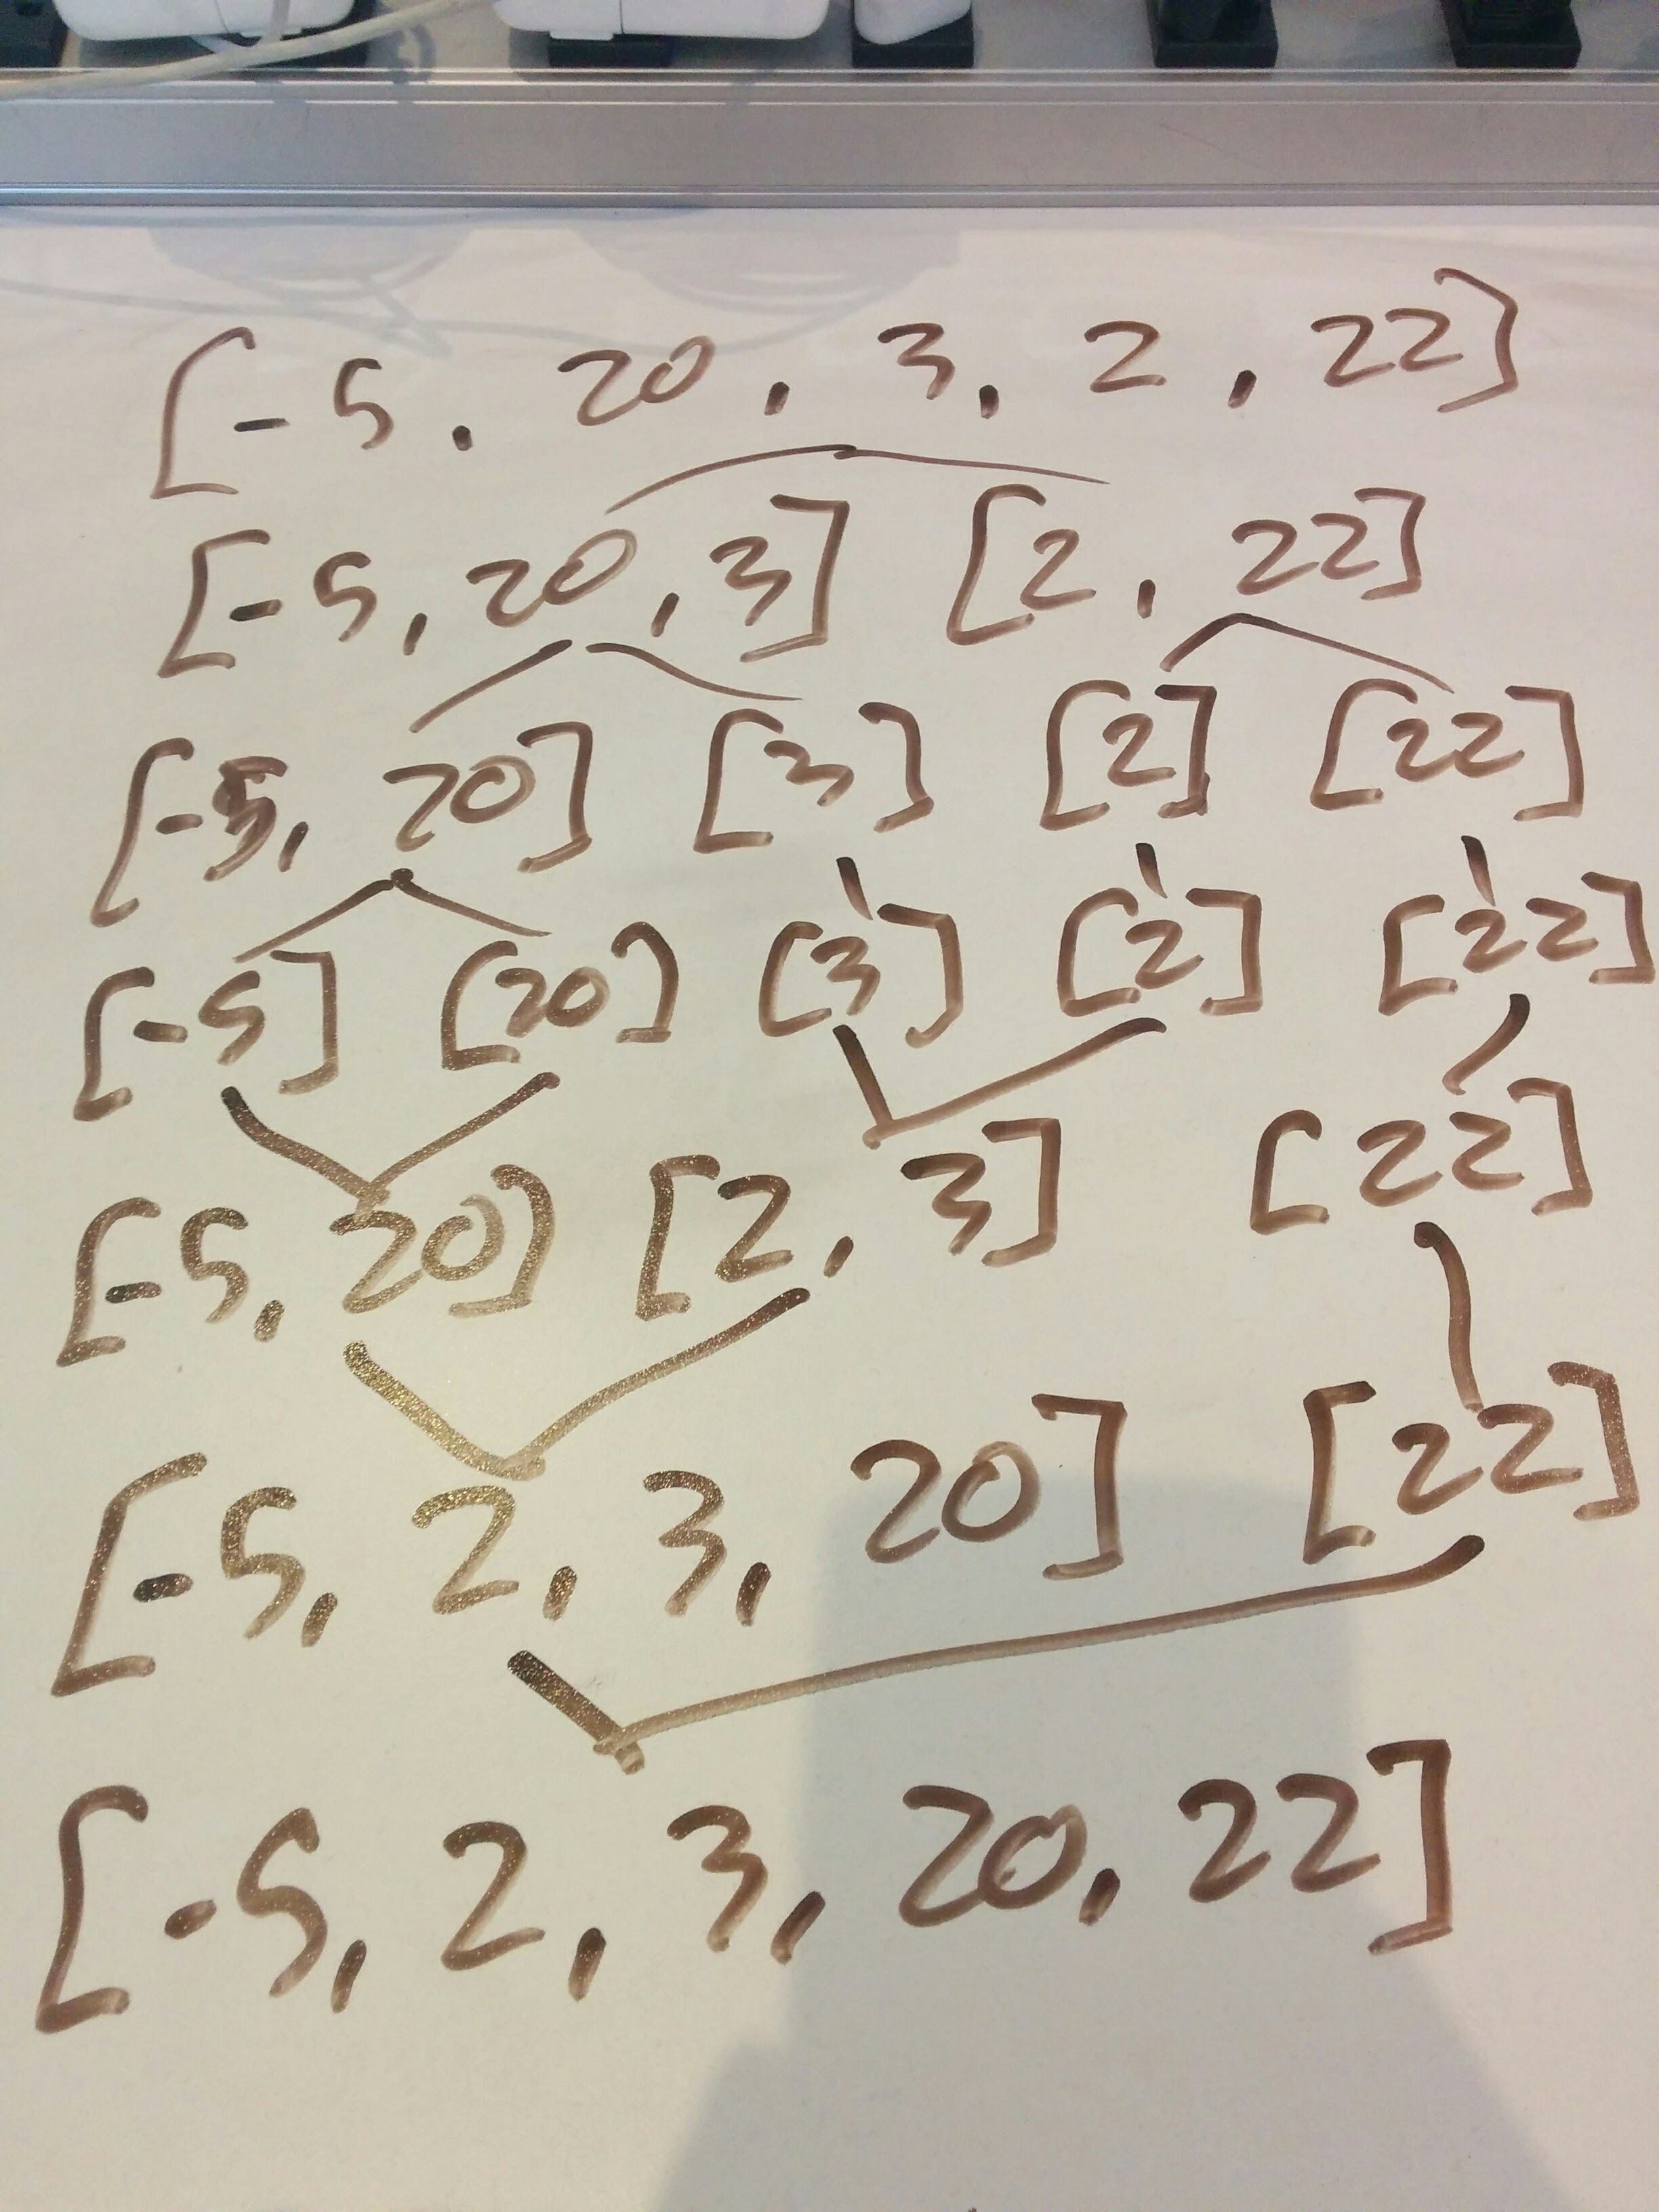 [-5, 20, 3, 2, 22]
[-5, 20, 3] [2, 22]
[-5, 20] [3] [2] [22]
[-5] [20] [3] [2] [22]
[-5, 20] [2, 3] [22]
[-5, 2, 3, 20] [22]
[-5, 2, 3, 20, 22]